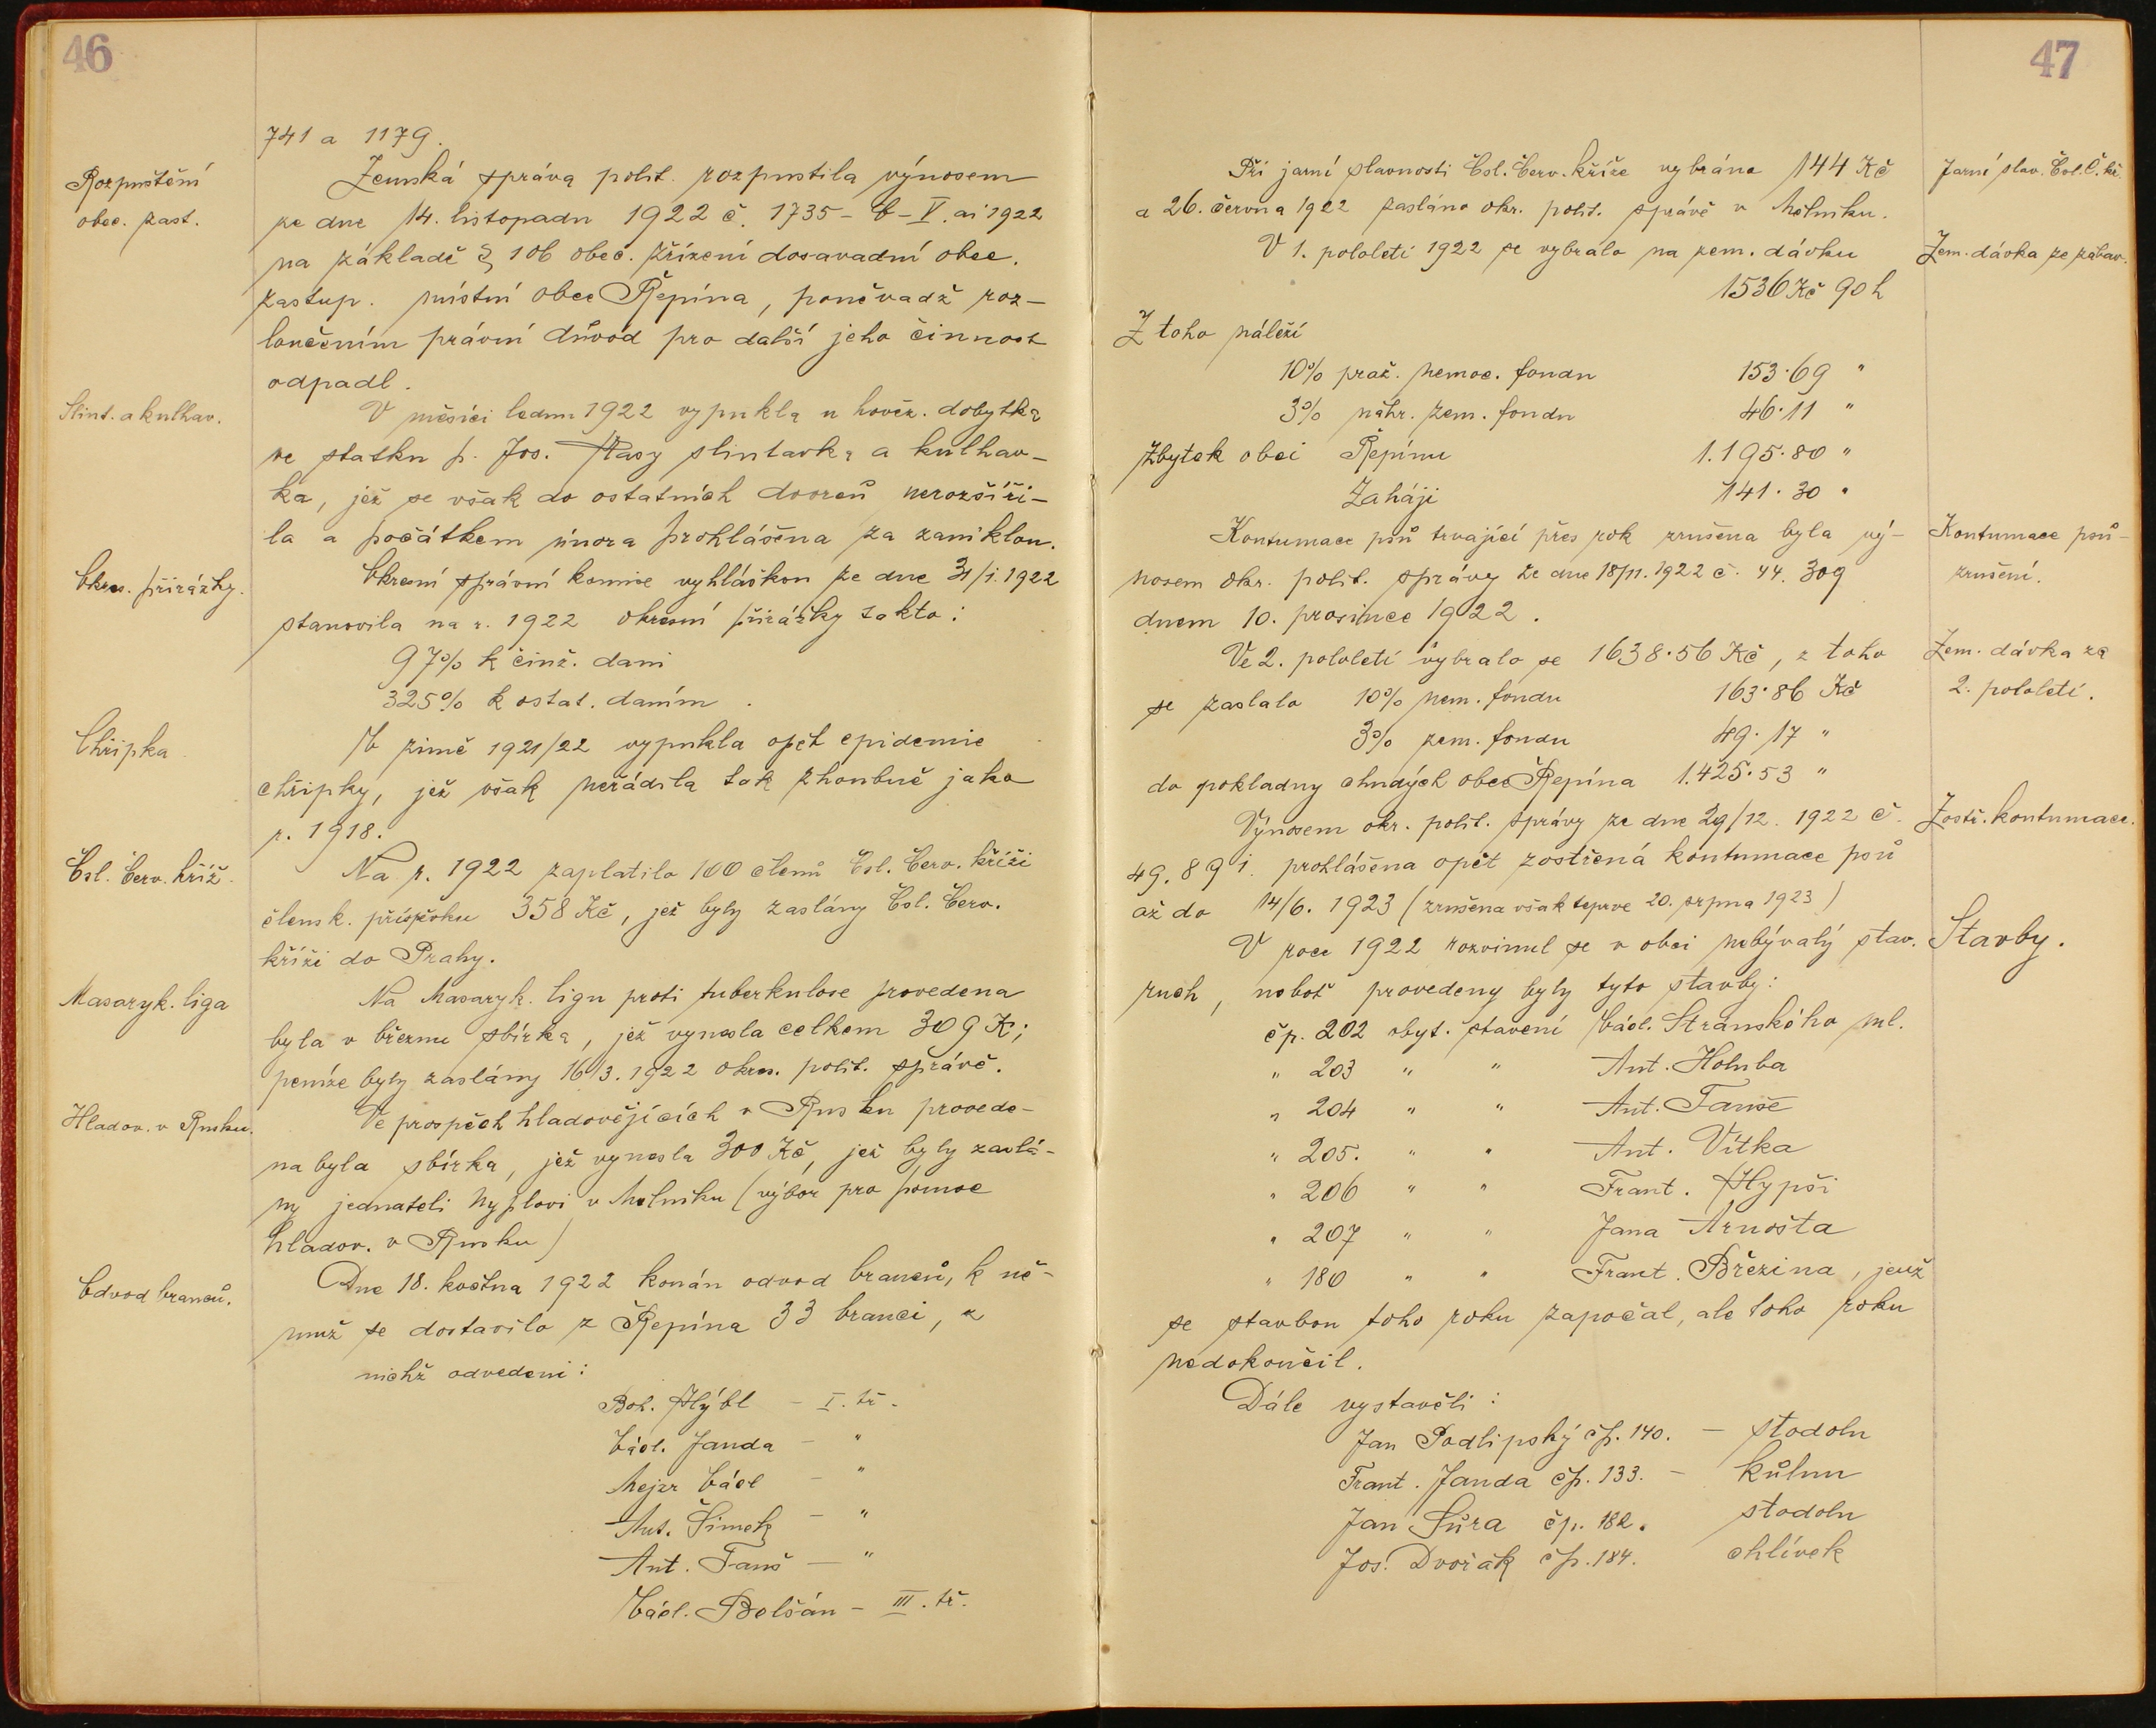 46
741 a 1179.
Rozpuštění
obec. zast.
Zemská správa polit. rozpustila výnosem
ze dne 14. listopadu 1922 č. 1735 - b - V. ai 1922
na základě § 106 obec. zřízení dosavadní obec.
zastup. místní obce Řepína, poněvadž roz-
loučením právní důvod pro další jeho činnost
odpadl.
Slint. a kulhav.
V měsíci lednu 1922 vypukla u hověz. dobytka
ve statku p. Jos. slintavka a kulhav-
ka, jež se však do ostatních dvorců nerozšíři-
la a počátkem února prohlášena za zaniklou.
Okres. přirážky.
Okresní správní komise vyhláškou ze dne 31/1. 1922
stanovila na r. 1922 okresní přirážky takto:
97% k činž. dani
325% k ostat. daním.
Chřipka
V zimě 1921/22 vypukla opět epidemie
chřipky, jež však neřádila tak zhoubně jako
r. 1918.
Čsl. Červ. kříž.
Na r. 1922 zaplatilo 100 členů Čsl. Červ. kříži
člensk. příspěvku 358 Kč, jež byly zaslány Čsl. Červ.
kříži do Prahy.
Masaryk. liga
Na Masaryk. ligu proti tuberkulose provedena
byla v březnu sbírka, jež vynesla celkem 309 K;
peníze byly zaslány 16/3. 1922 okres. polit. správě.
Hladov. v Rusku.
Ve prospěch hladovějících v Rusku provede-
na byla sbírka, jež vynesla 300 Kč, jež byly zaslá-
ny jednateli Nyplovi v Mělníku (výbor pro pomoc
hladov. v Rusku)
Odvod branců.
Dne 18. května 1922 konán odvod branců, k ně-
muž se dostavilo z Řepína 33 branci, z
nichž odvedeni:
Boh. Hýbl - I. tř.
Václ. Janda - "
Mejzr Václ - "
Ant. Šimek - "
Ant. Fanš - "
Václ. Bolšán - III. tř.
47
Při jarní slavnosti Čsl. Červ. kříže vybráno 144 Kč
Jarní slav. Čsl. Č. kř.
a 26. června 1922 zasláno okr. polit. správě v Mělníku.
V 1. pololetí 1922 se vybralo na zem. dávku
Zem. dávka ze zábav.
1536 Kč 90 h
Z toho náleží
10% praž. nemoc. fondu 153·69 "
3% náhr. zem. fondu 46·11 "
Zbytek obci Řepínu 1.195·80 "
Zaháji 141·30 "
Kontumace psů trvající přes rok zrušena byla vý-
Kontumace psů -
nosem okr. polit. správy ze dne 18/11. 1922 č. 44.309
zrušení.
dnem 10. prosince 1922.
Ve 2. pololetí vybralo se 1638·56 Kč, z toho
Zem. dávka za
se zaslalo 10% nem. fondu 163·86 Kč
2. pololetí.
3% zem. fondu 49·17 "
do pokladny chudých obce Řepína 1.425·53 "
Výnosem okr. polit. správy ze dne 29/12. 1922 č.
Zostř. kontumace.
49.891. prohlášena opět zostřená kontumace psů
až do 14/6. 1923 (zrušena však teprve 20. srpna 1923)
V roce 1922 rozvinul se v obci nebývalý stav.
Stavby.
ruch, neboť provedeny byly tyto stavby:
čp. 202 obyt. stavení Václ. Stránského ml.
" 203 " " Ant. Holuba
" 204 " " Ant. Fanše
" 205. " " Ant. Vítka
" 206 " " Frant. Hypši
" 207 " " Jana Arnošta
" 180 " " Frant. Březina, jenž
se stavbou toho roku započal, ale toho roku
nedokončil.
Dále vystavěli:
Jan Podlipský čp. 140. - stodolu
Frant. Janda čp. 133. - kůlnu
Jan Sůra čp. 182. stodolu
Jos. Dvořák čp. 184. chlívek